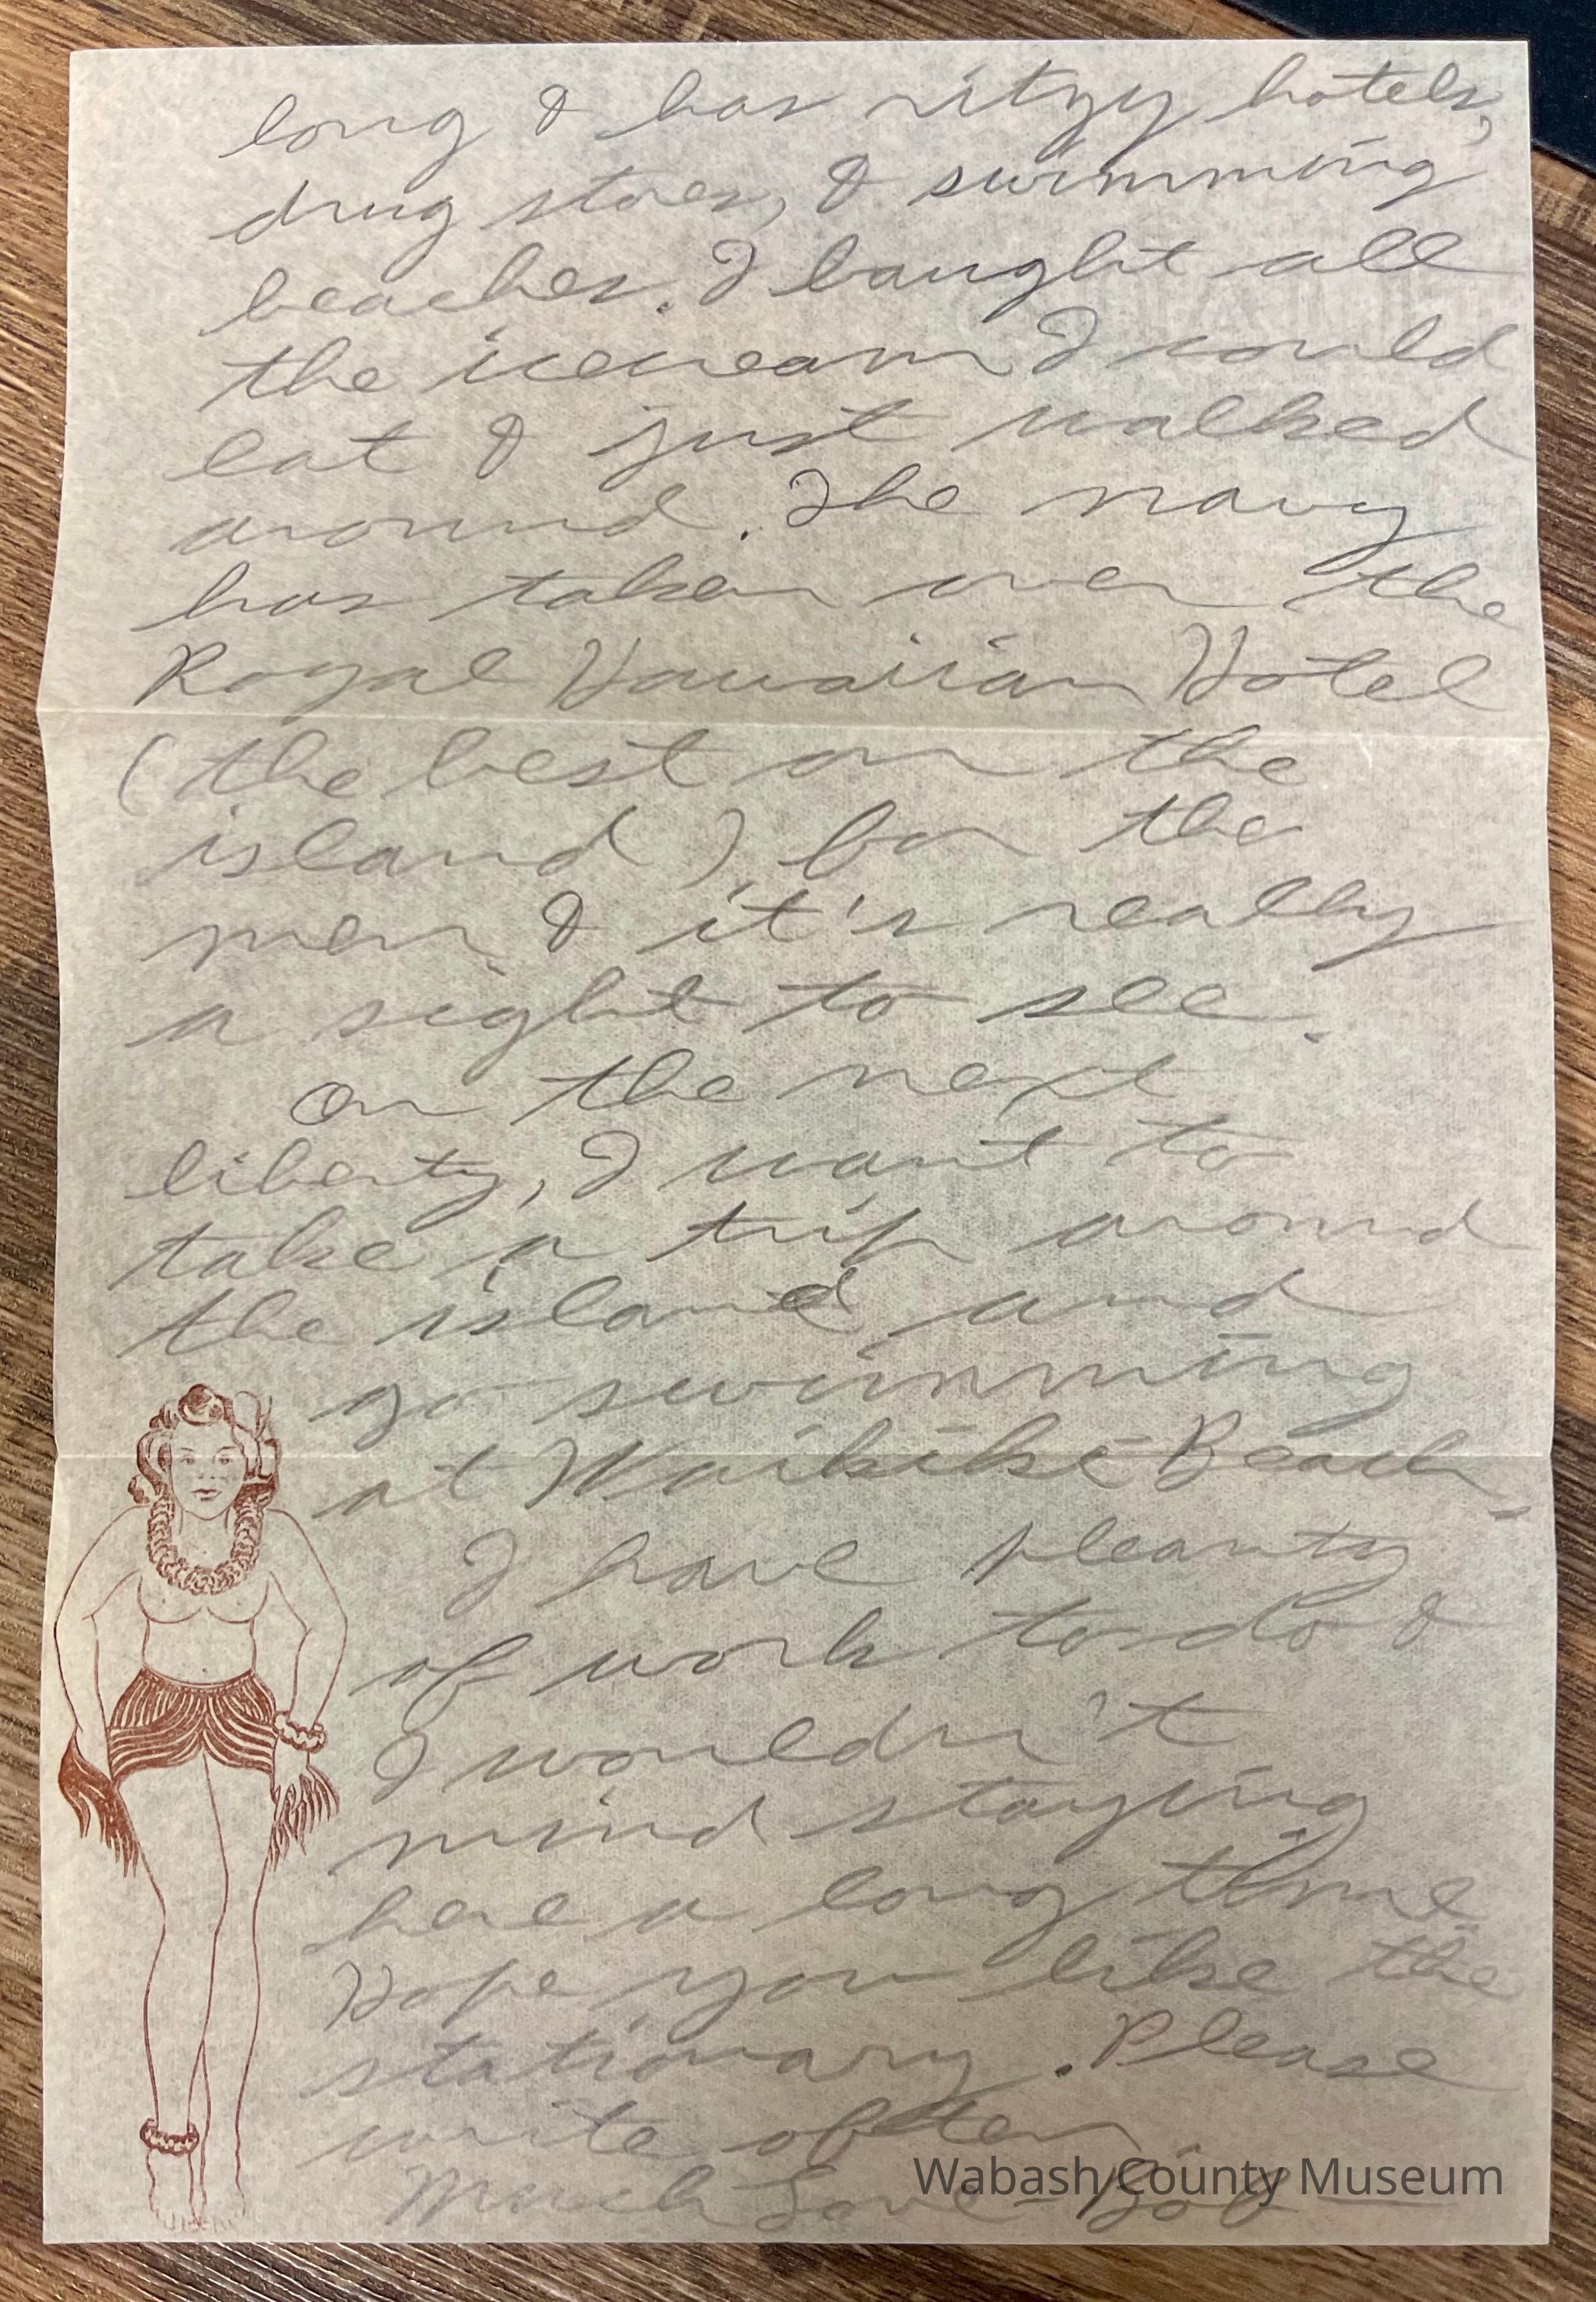 long & has ritzy hotels,
drug stores, & swimming
beaches. I baught all
the icecream I could
eat & just walked
around. The navy
has taken over the
Royal Hawaiian Hotel
(the best on the
island) for the
men & it's really
a sight to see.
On the next
liberty, I want to
take a trip around
the island and
go swimming
at Waikiki Beach.
I have pleanty
of work to do &
I wouldn't
mind staying
here a long time.
Hope you like the
stationary. Please
write often.
Much Love - Bob -
Wabash County Museum